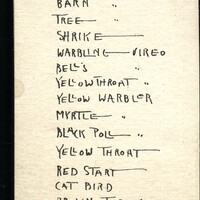 BARN "
TREE "
SHRIKE
WARBLING VIREO
BELL'S "
YELLOWTHROAT "
YELLOW WARBLER
MYRTLE "
BLACK POLL "
YELLOW THROAT
RED START
CAT BIRD